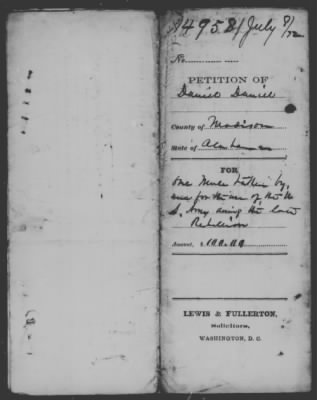 14958/July 9/72
No.
PETITION OF
Daniel Daniel
County of Madison
State of Alabama
FOR
One Mule taken by
and for the use of the U
S. Army during the late
Rebellion
Amount, $
LEWIS & FULLERTON,
Solicitors,
WASHINGTON, D. C.